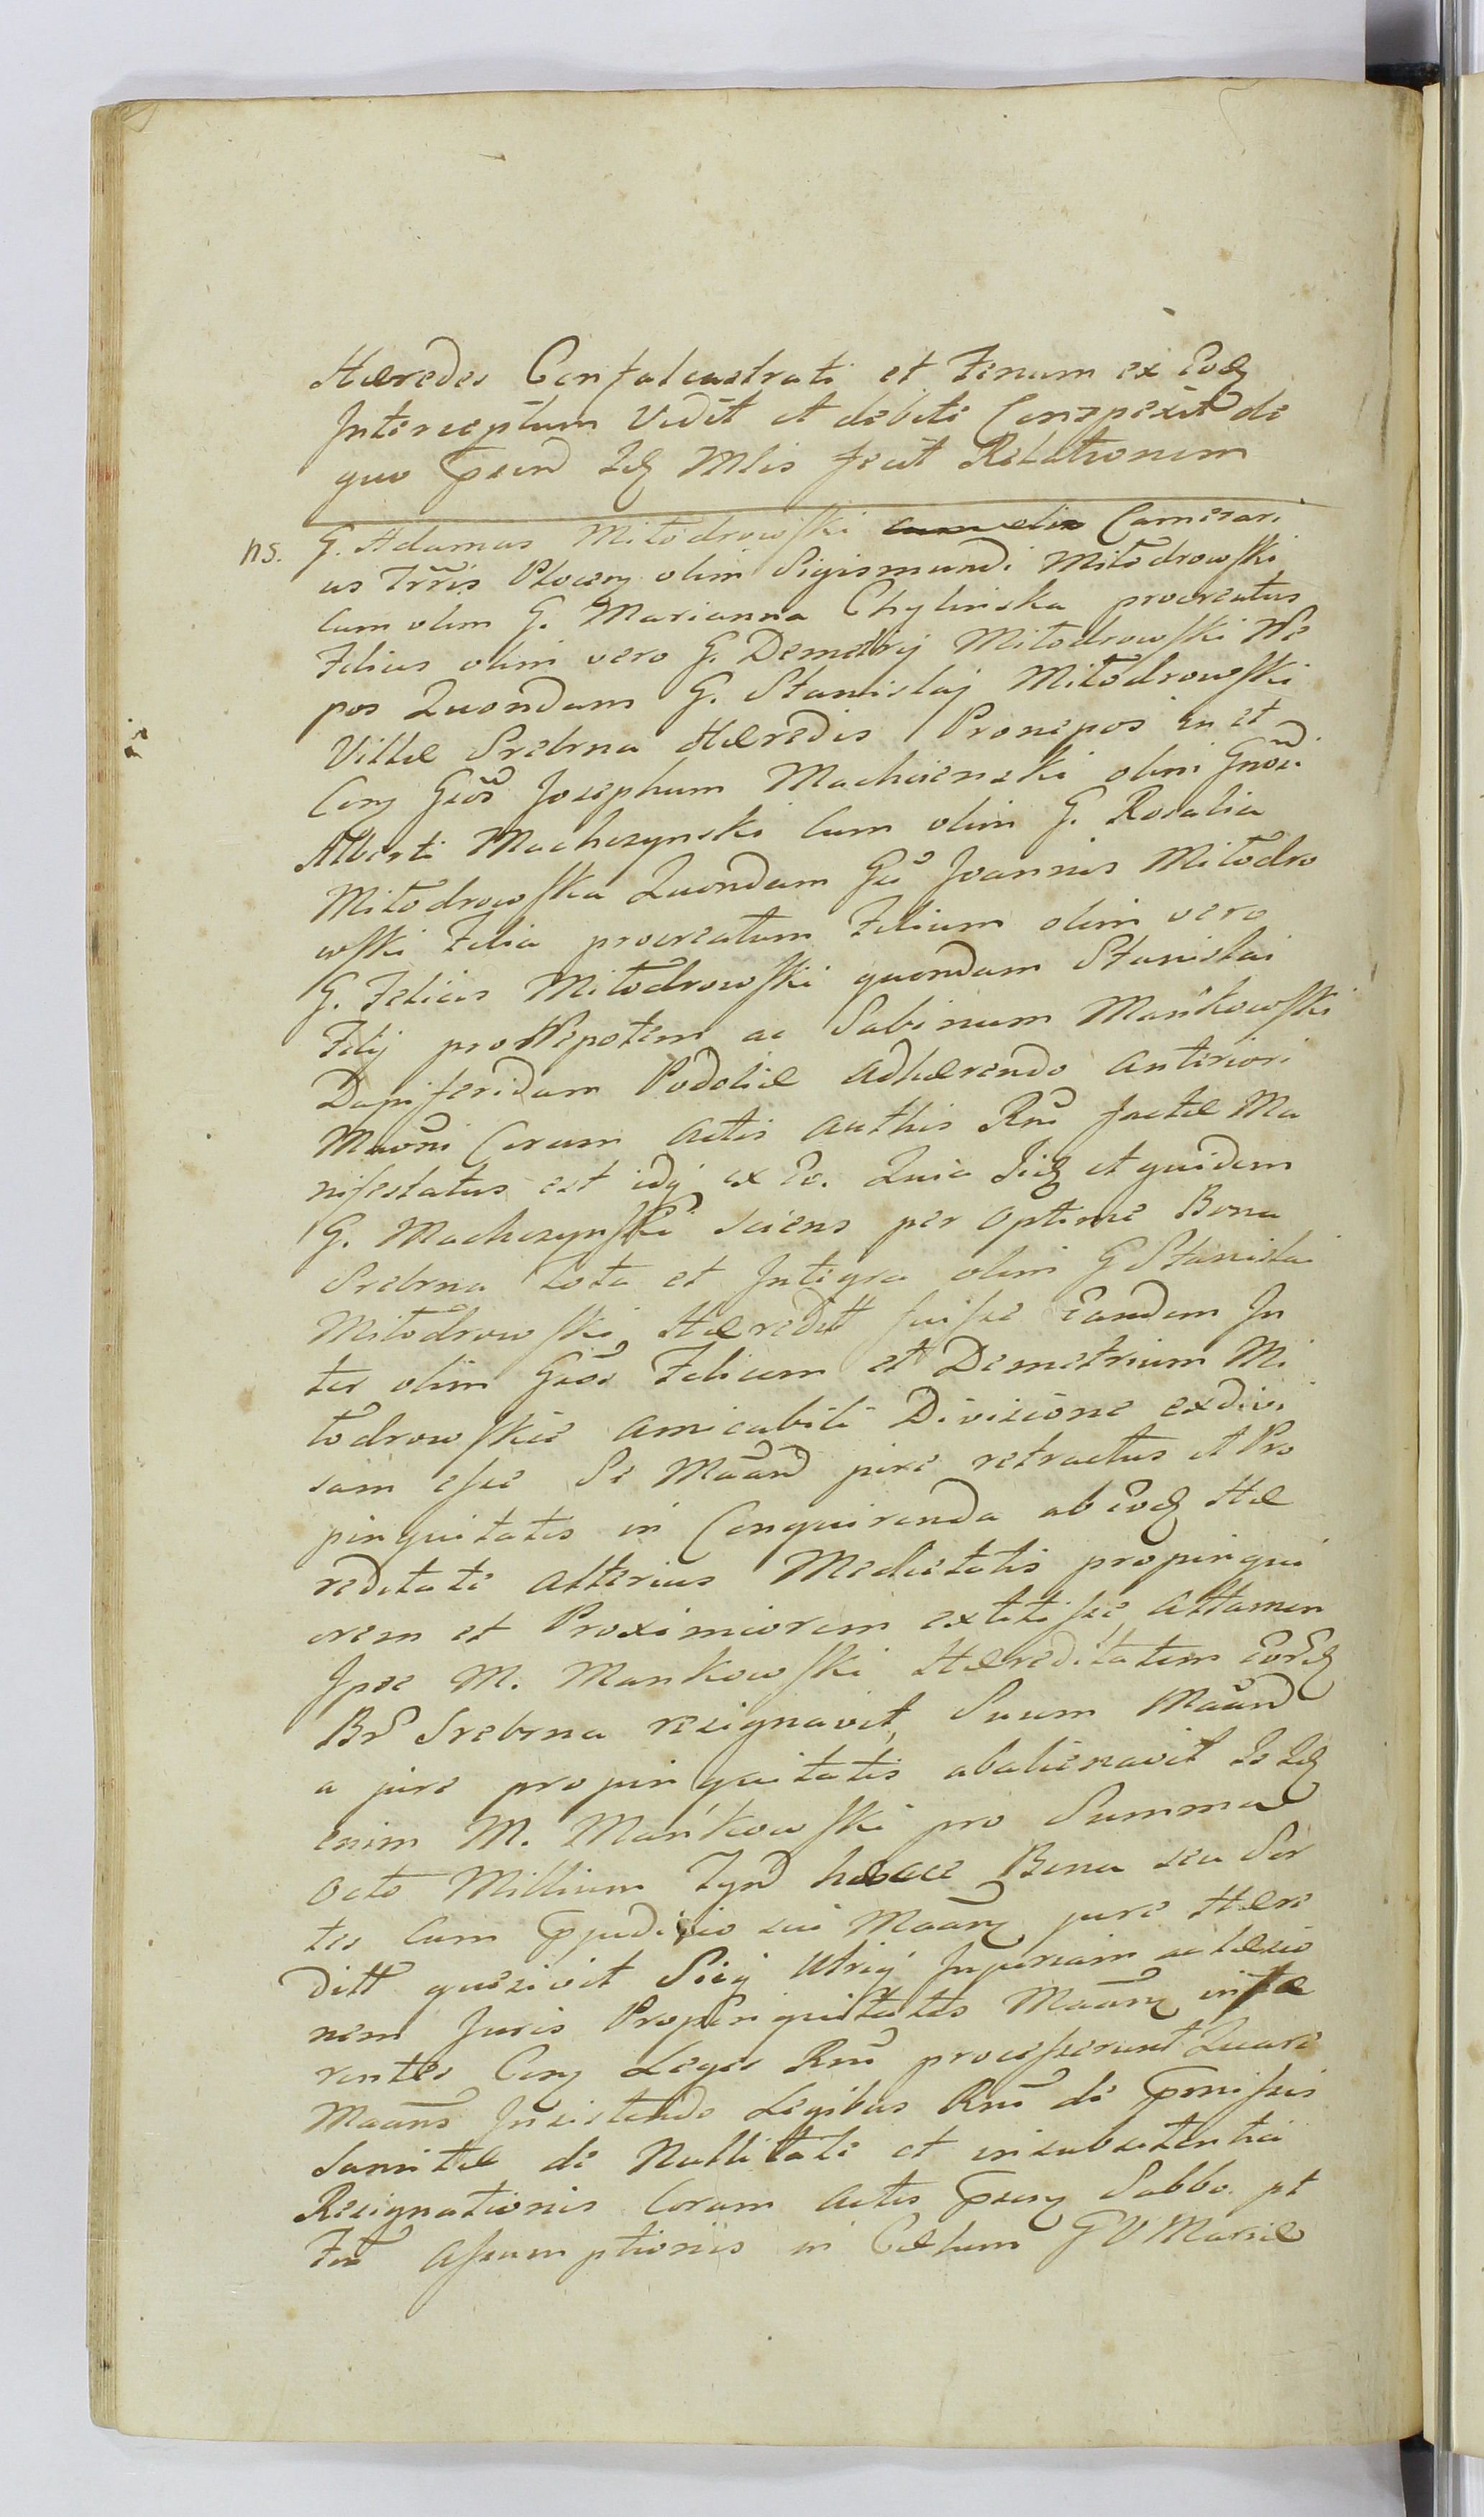 Hæredes Confalcastrati et Fenum ex Eodq
Interceptum Vidit et debite Conspexit de
quo Idq Mlis fecit Relationem
ns. G. Adamus Miłodrowski Camerari
us Trris Płocen olim Sigismundi Miłodrowski
Cum olim G. Marianna Chylinska procreatus
Filius olim vero G. Demetrij Miłodrowski Ne
pos Quondam G. Stanislaj Miłodrowski
Villæ Srebrna Hæredis Pronepos in et
Con Gsos Josephum Machcienski olim Gnosi
Alberti Machczynski Cum olim G. Rosalia
Miłodrowska Quondam Gsi Joannis Miłodro
wski Filia procreatum Filium olim vero
G. Felicis Miłodrowski quondam Stanislai
Filij proNepotem ac Sabinum Mańkowski
Dapiferidam Podoliæ adhærendo anteriori
Maoni Coram Actis authis Rni factæ Ma
nifestatus est idq ex Eo. Quia Iidq et quidem
G. Machczynski sciens per optime Bona
Srebrna tota et Integra olim G Stanislai
Miłodrowski Hæredit fuisse Eandem In
ter olim Gsos Felicem et Demetrium Mi
łodrowskie amicabili Divisione exdivi
sam esse Se Maand jure retractus et Pro
pinquitatis in Conquirenda ab Eodq Hæ
reditate alterius Medietatis propinqui
orem et Proximiorem extitisse, attamen
Ipse M. Mankowski Hæreditatem Eordq
Br Srebrna resignavit, Suum Maand
a jure propinquitatis abalienavit Is Idq
enim M. Mańkowski pro Summa
octo Millium hæcce Bona seu Sor
tes Cum ppudicio sui Maan jure Hære
ditt quæsivit Siq Utriq Injuriam ac læsio
nem Juris Propinquitatis Maan infæ
rentes Con Leges Rni processerunt Quare
Maans Insistendo Legibus Rni de pmissis
Sanitæ de Nullitate et insubsitentia
Resignationis Coram actis psen Sabbo pt
Ftu Assumptionis in Cælum G V Mariæ